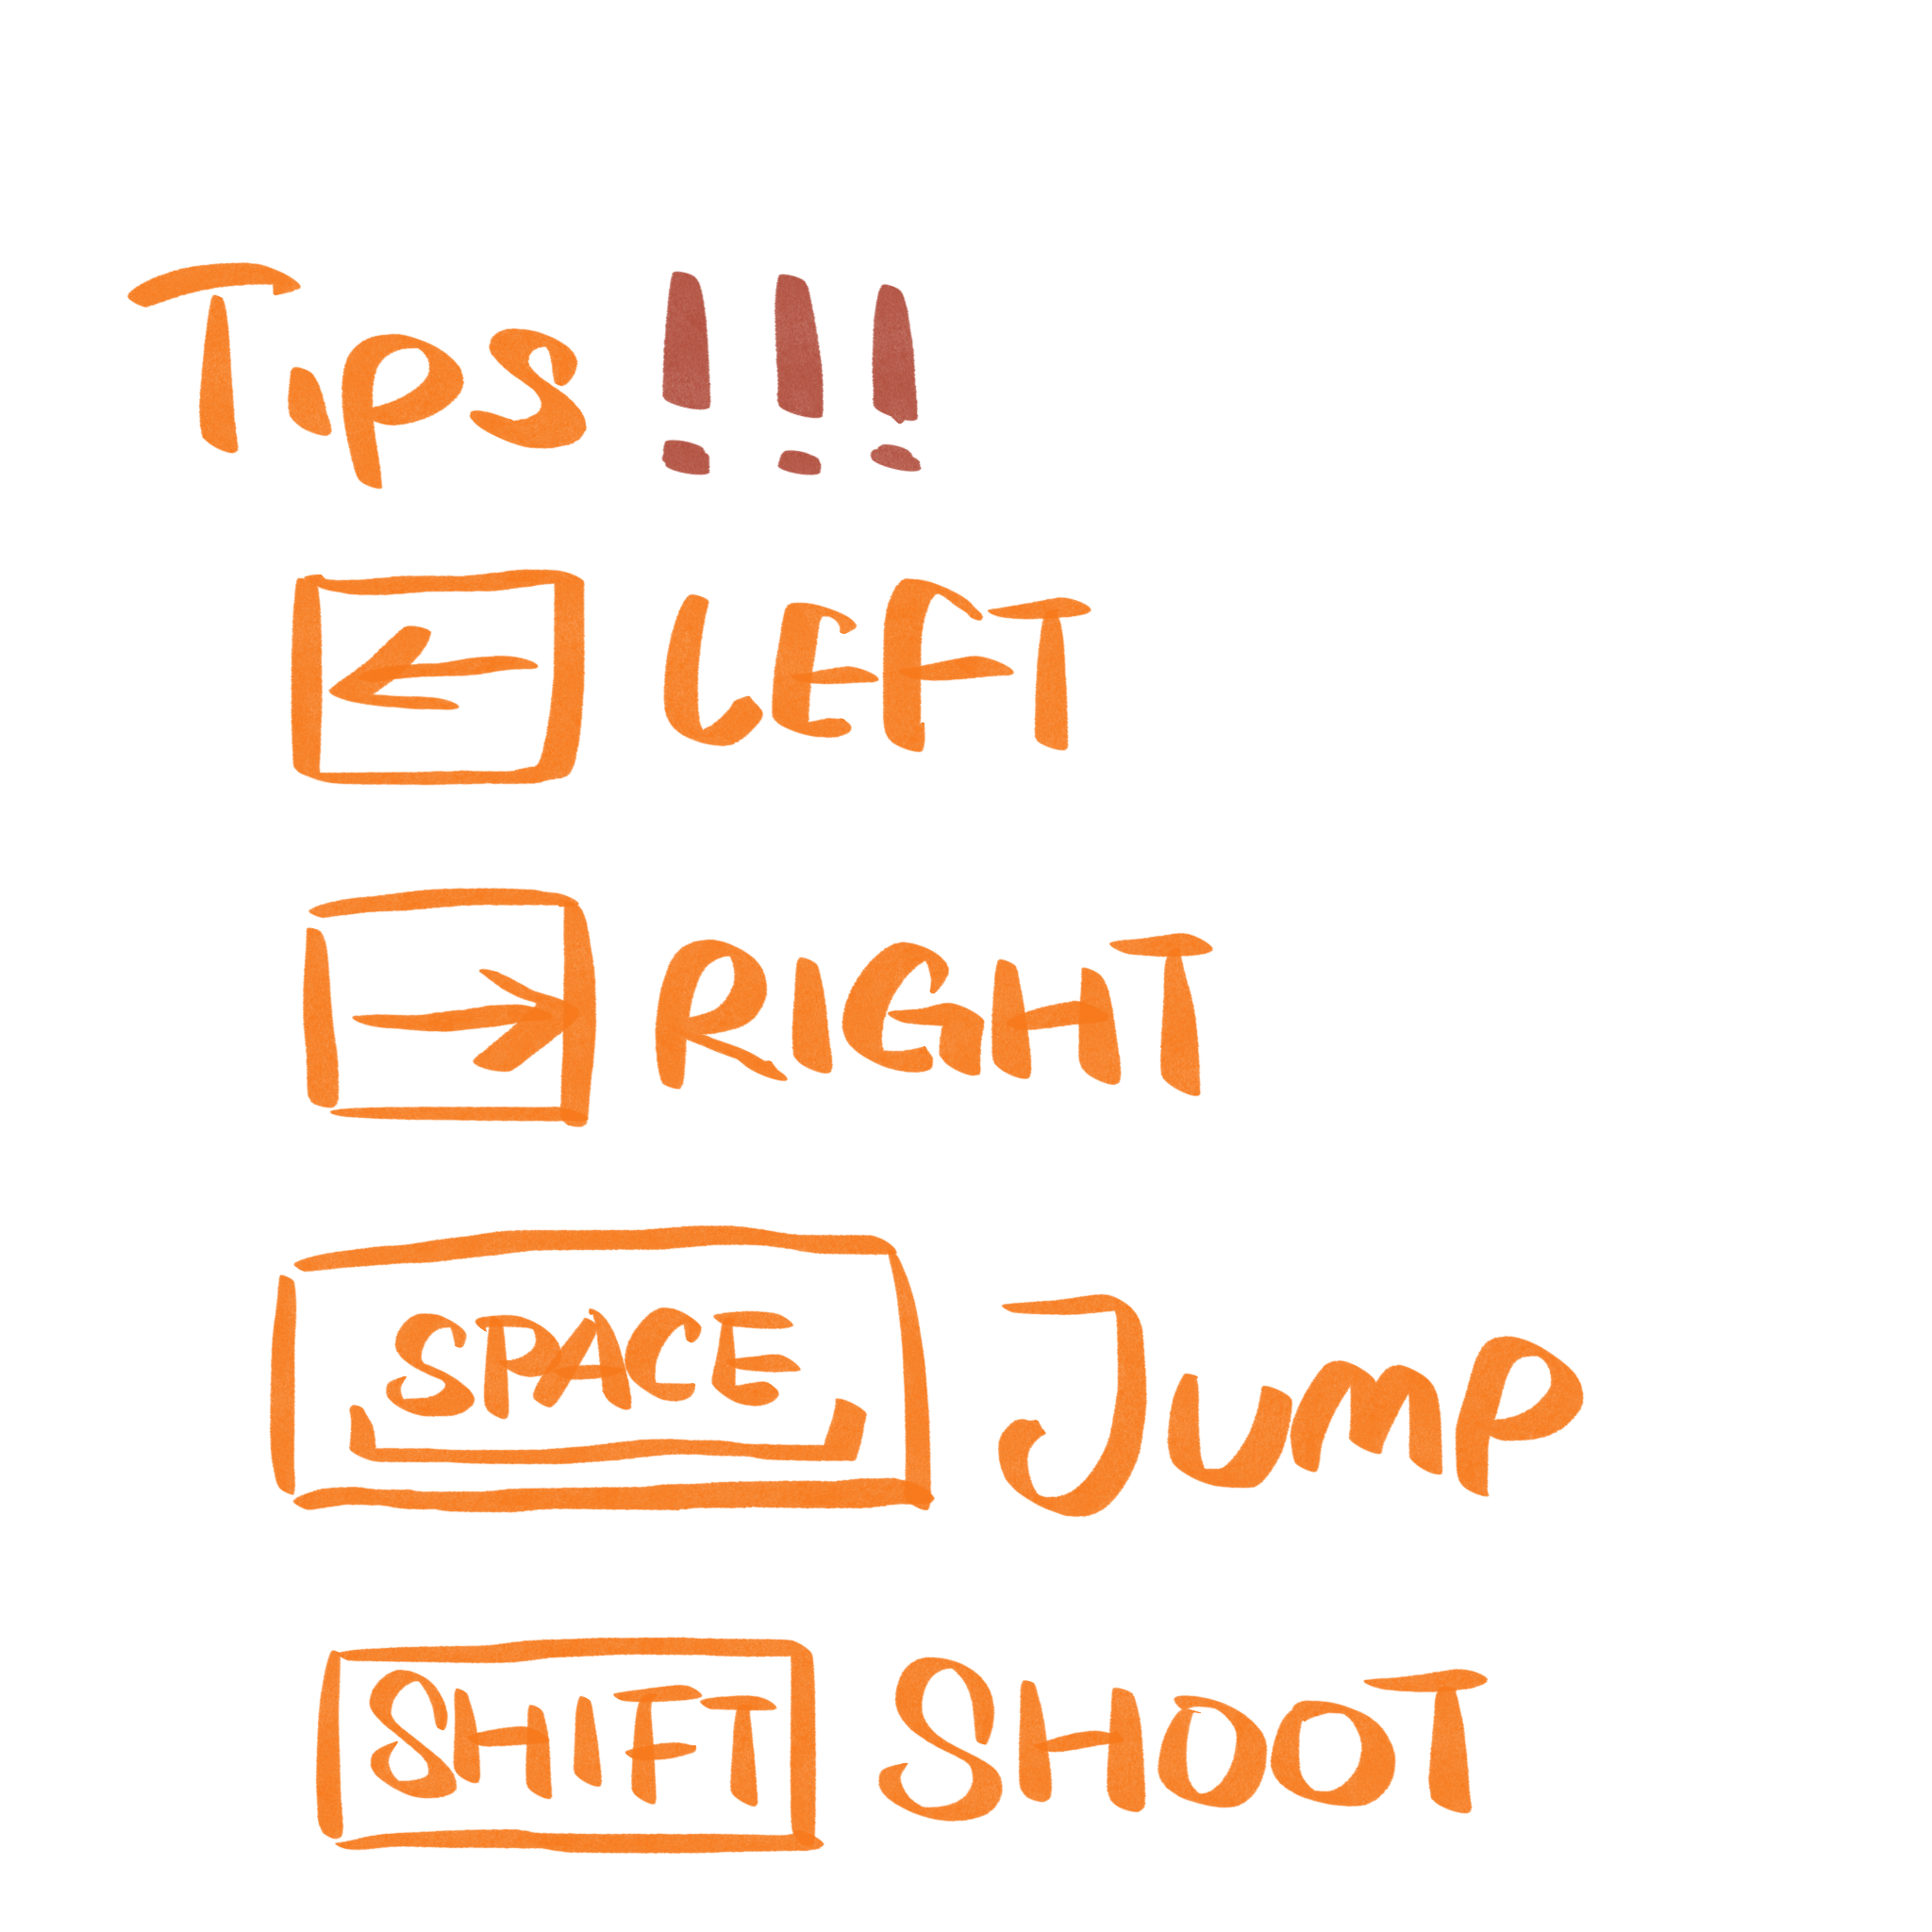 Tips !!!
← LEFT
→ RIGHT
SPACE JUMP
SHIFT SHOOT